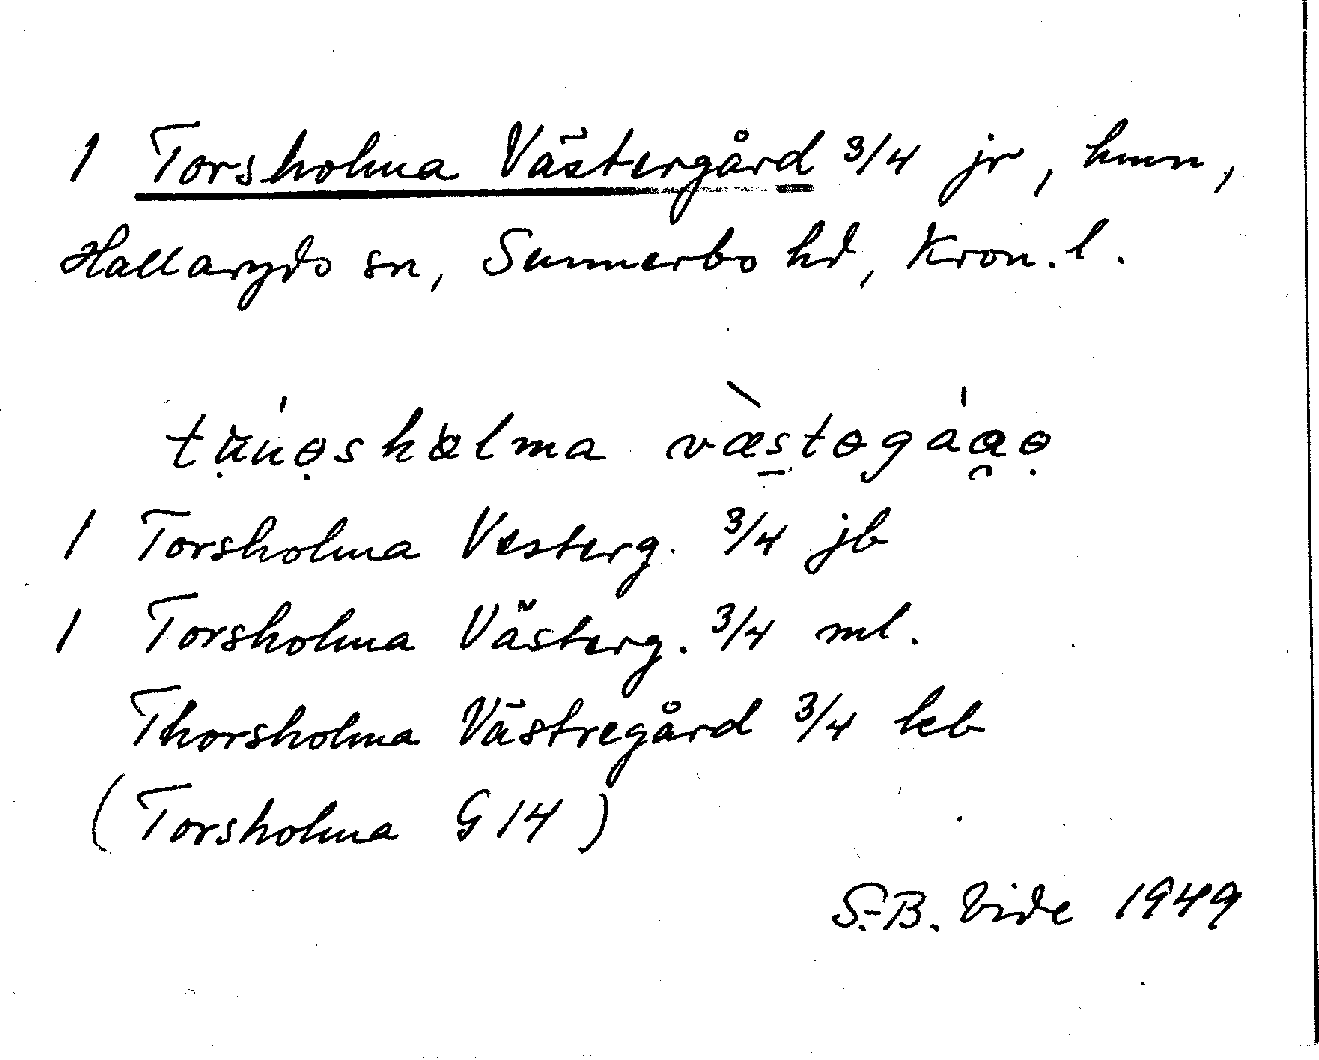 1 Torsholma Västergård 3/4 jr, hmn,
Hallaryds sn, Sunnerbo hd, Kron. l.
1 Torsholma Vesterg. 3/4 jb
1 Torsholma Västerg. 3/4 ml.
Thorsholma Västregård 3/4 kb
(Torsholma G 14)
S.-B. Vide 1949